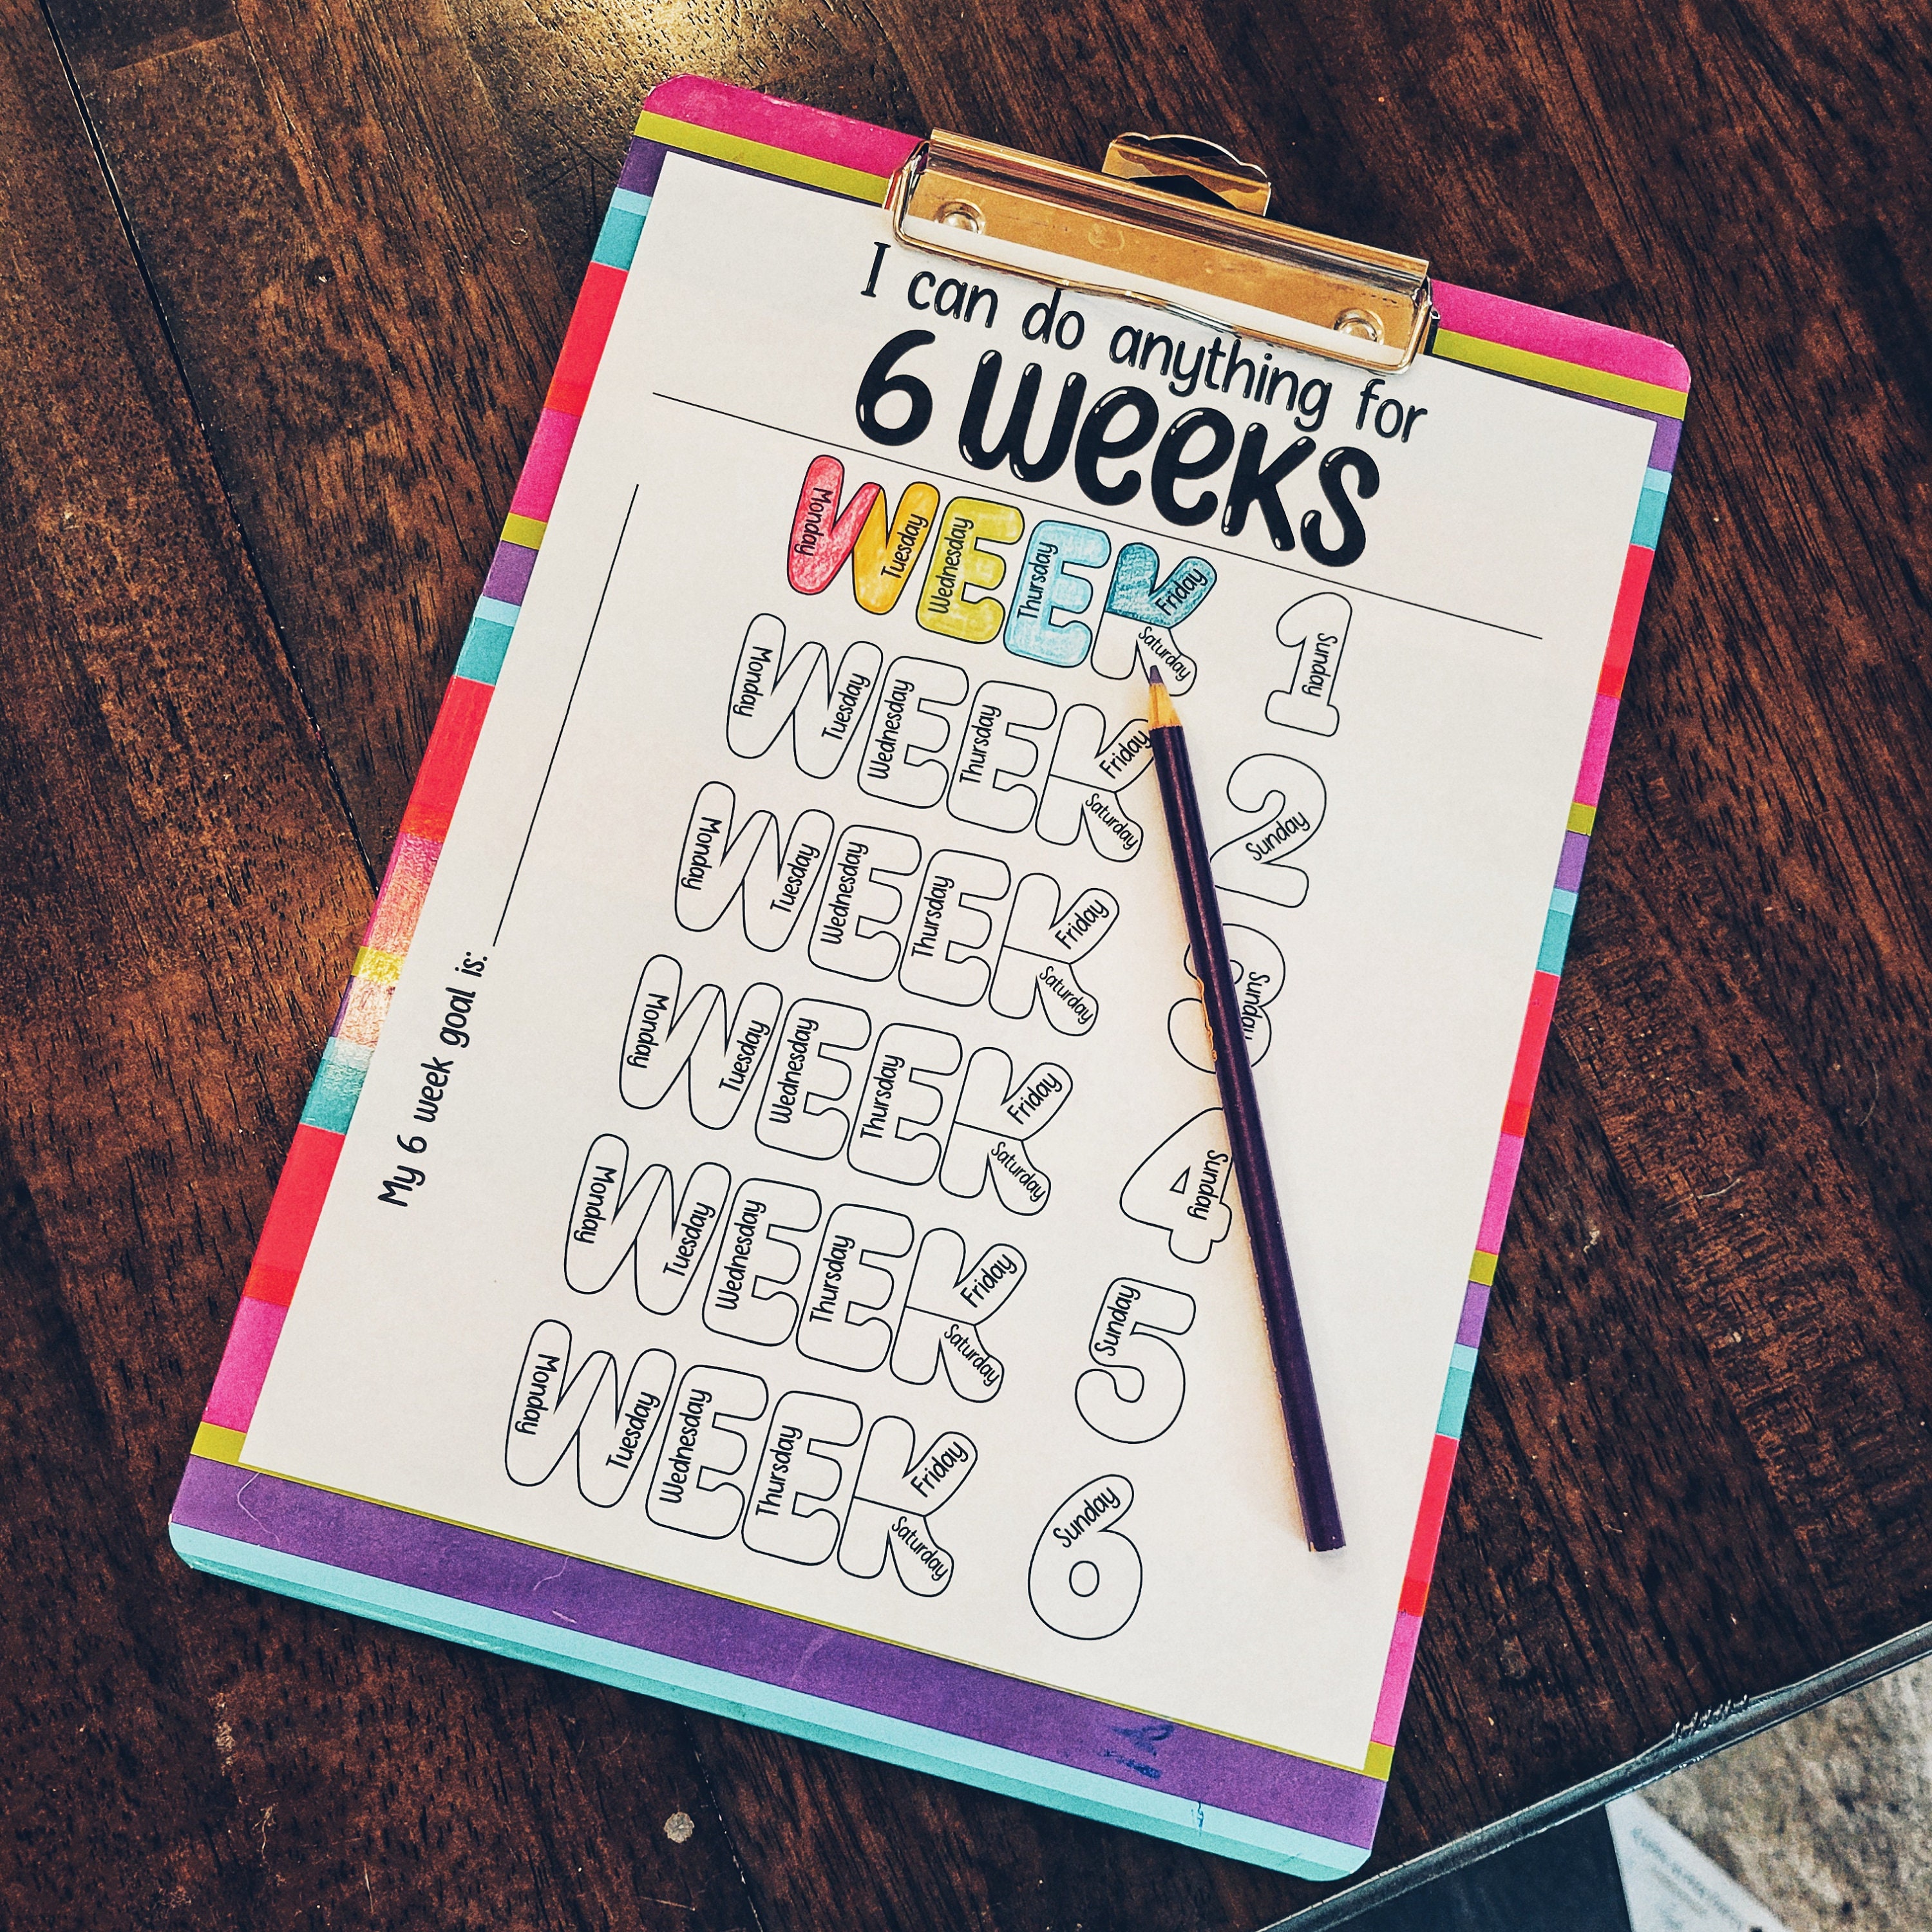 I can do anything for
6 weeks
My 6 week goal is:
Monday Tuesday Wednesday Thursday Friday Saturday Sunday
WEEK 1
Monday Tuesday Wednesday Thursday Friday Saturday Sunday
WEEK 2
Monday Tuesday Wednesday Thursday Friday Saturday Sunday
WEEK 3
Monday Tuesday Wednesday Thursday Friday Saturday Sunday
WEEK 4
Monday Tuesday Wednesday Thursday Friday Saturday Sunday
WEEK 5
Monday Tuesday Wednesday Thursday Friday Saturday Sunday
WEEK 6